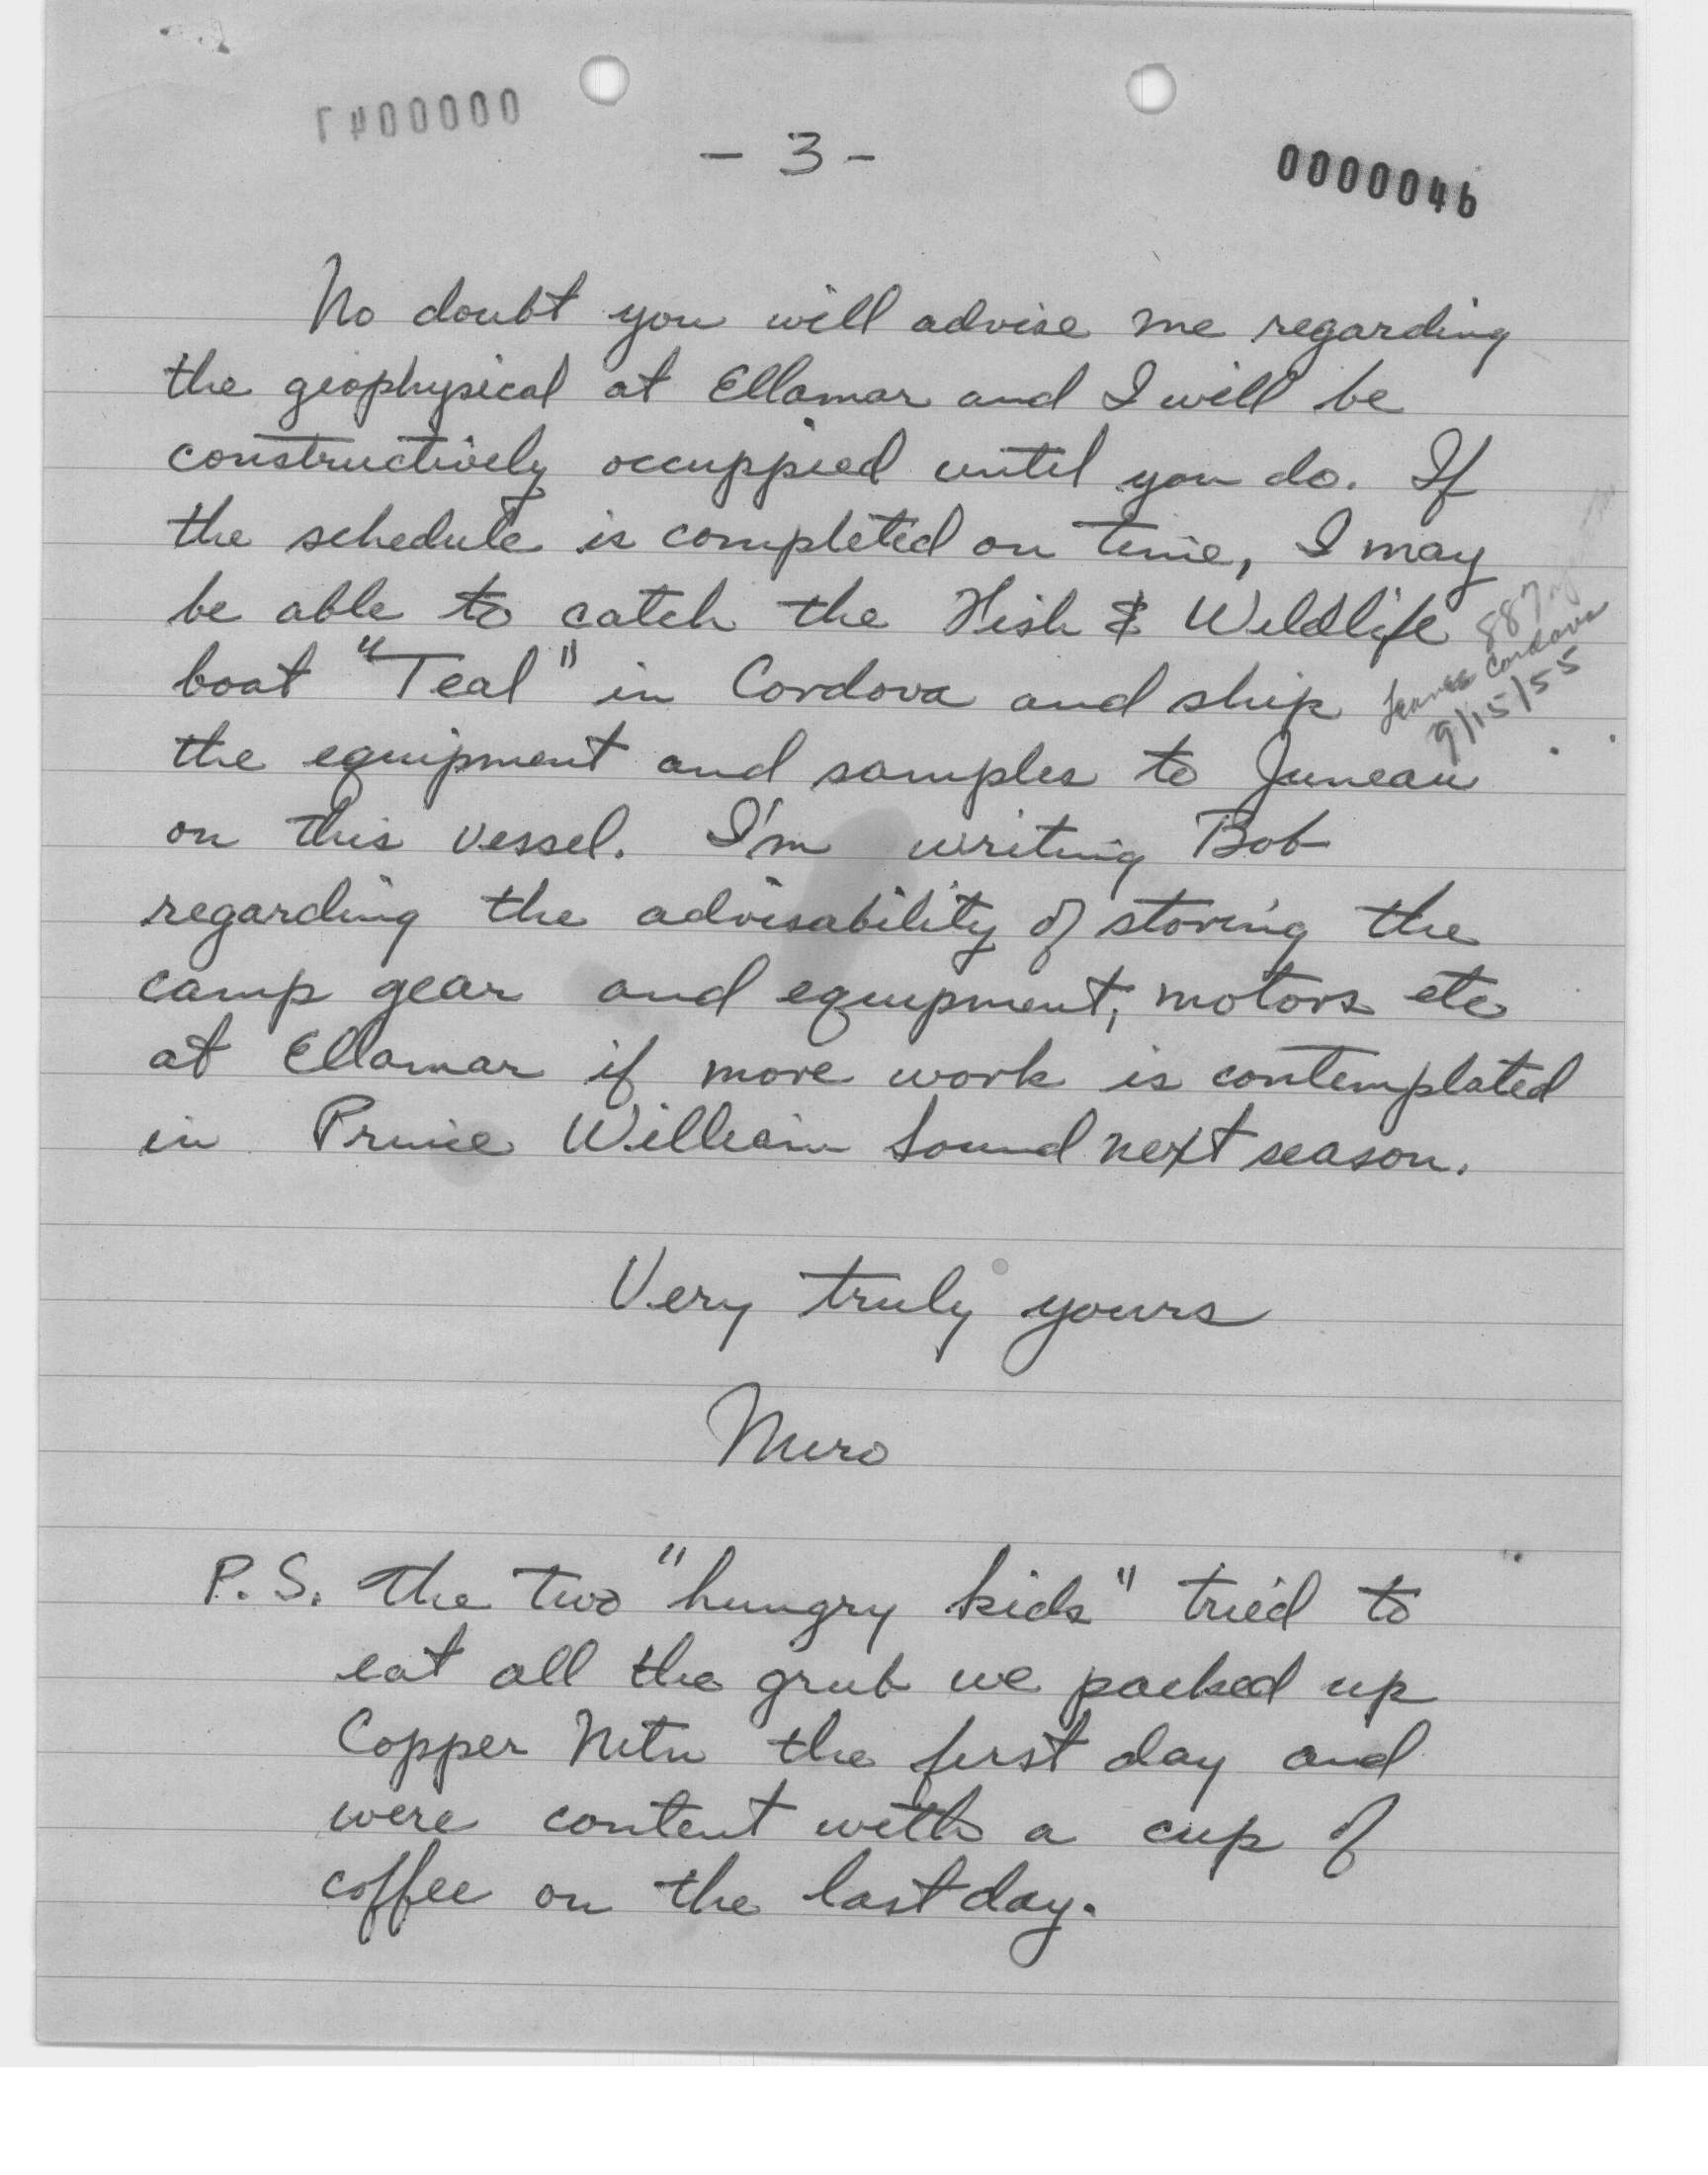 - 3 -
0000046
No doubt you will advise me regarding
the geophysical at Ellamar and I will be
constructively occuppied until you do. If
the schedule is completed on time, I may
be able to catch the Fish & Wildlife
boat "Teal" in Cordova and ship
the equipment and samples to Juneau
on this vessel. I'm writing Bob
regarding the advisability of storing the
camp gear and equipment, motors etc
at Ellamar if more work is contemplated
in Prince William Sound next season.
887
Leaves Cordova
9/15/55
Very truly yours
Miro
P.S. The two "hungry kids" tried to
eat all the grub we packed up
Copper Mtn the first day and
were content with a cup of
coffee on the last day.